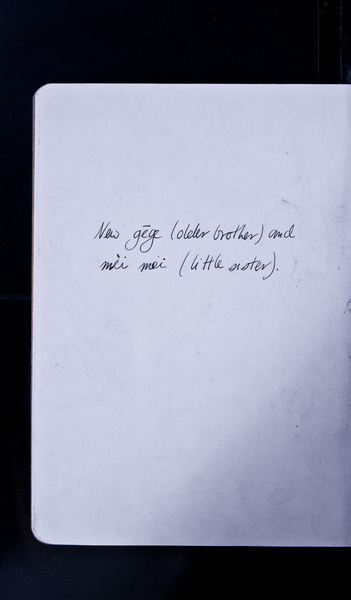 New gēge (older brother) and
mèi mei (little sister).